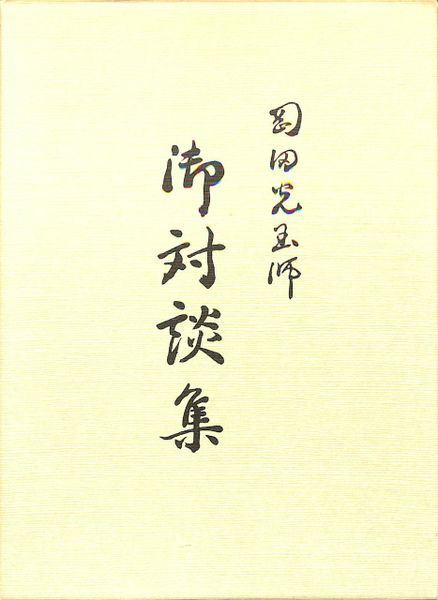 岡田光玉師
御対談集